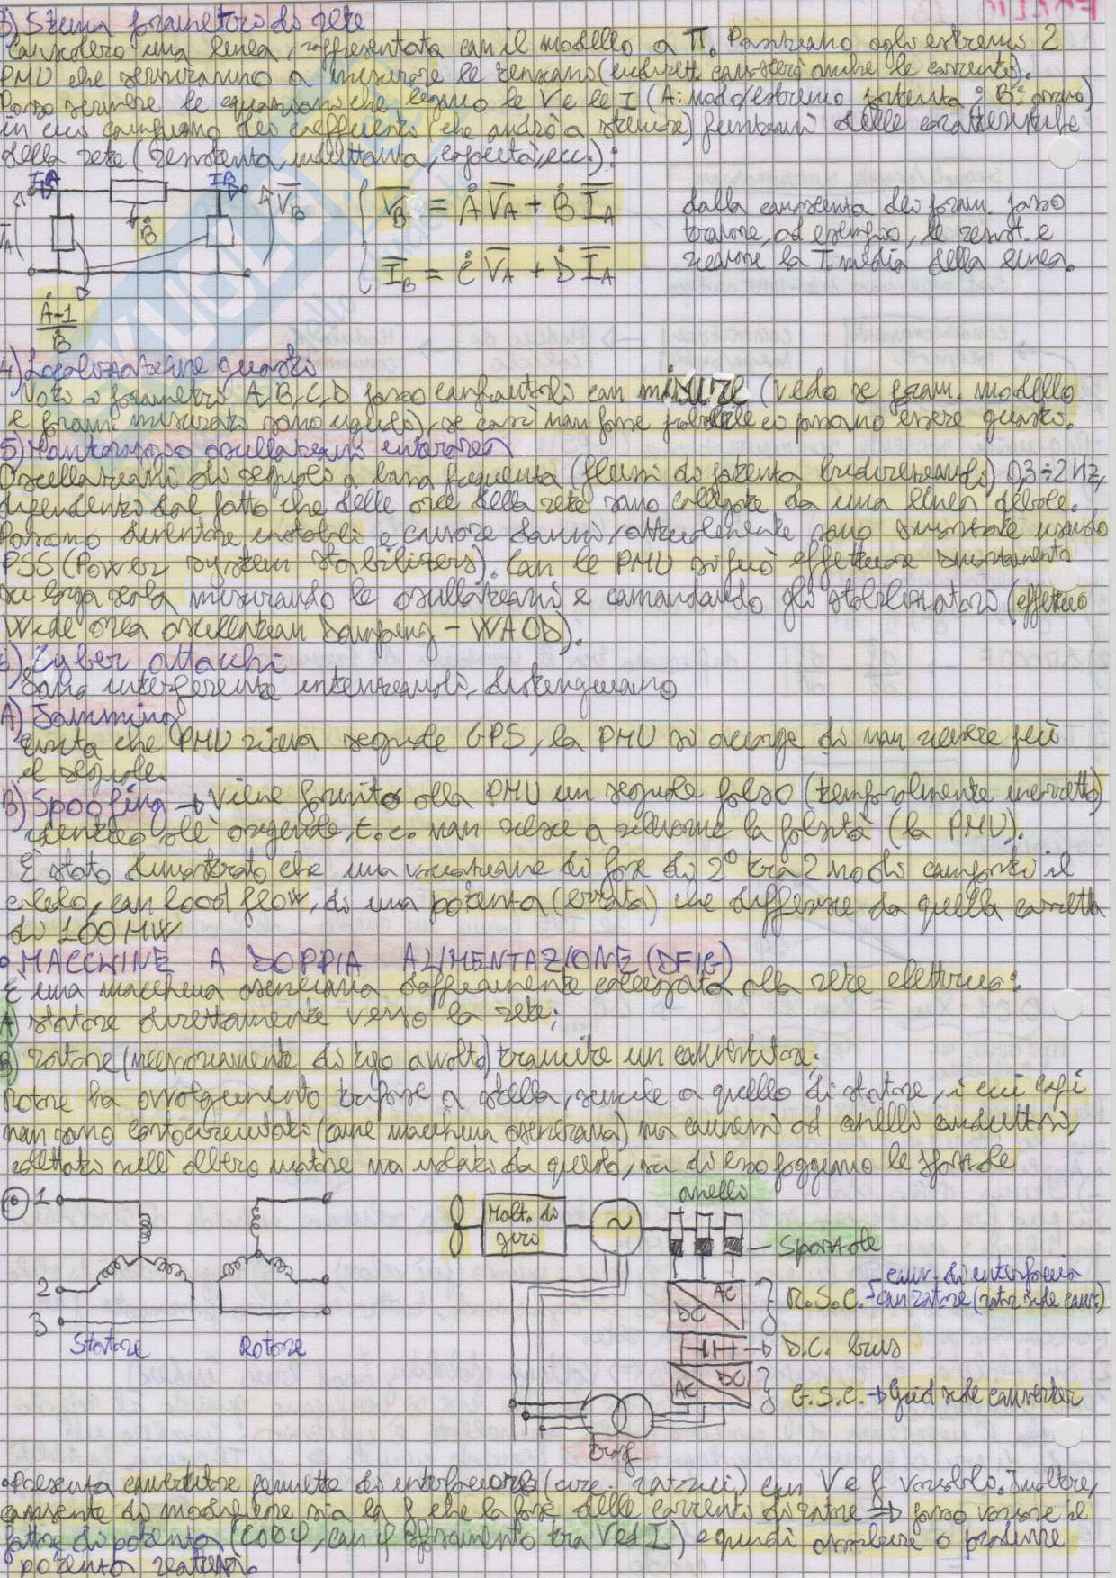 3) Stima parametri di rete
Considero una linea, rappresentata con il modello a π. Posiziono agli estremi 2
PMU che serviranno a misurare le tensioni (indirett. conoscerò anche le correnti).
Posso scrivere le equazioni che legano le V e le I (A: nodo/estremo partenza; B: arrivo)
in cui compaiono dei coefficienti (che andrò a stimare) funzioni delle caratteristiche
della rete (resistenza, induttanza, capacità, ecc.):
IA IB
VA B VB
VB = A VA + B IA
IB = C VA + D IA
A-1
B
dalla conoscenza dei param. posso
trovare, ad esempio, la resist. e
ricavare la T media della linea.
4) Localizzazione guasti
Noti i parametri A, B, C, D posso confrontarli con misure (vedo se param. modello
e param. misurati sono uguali), se così non fosse ci possono essere guasti.
5) Monitoraggio oscillazioni interarea
Oscillazioni di segnali a bassa frequenza (flussi di potenza bidirezionali) 0,3÷2 Hz,
dipendenti dal fatto che delle aree della rete sono collegate da una linea debole.
Possono diventare instabili e causare danni, attualmente sono smorzate usando
PSS (Power system stabilizers). Con le PMU si può effettuare smorzamento
su larga scala misurando le oscillazioni e comandando gli stabilizzatori (effettuo
Wide area oscillation Damping - WAOD).
6) Cyber attacchi
Sono interferenze intenzionali, distinguiamo
A) Jamming
evita che PMU riceva segnale GPS, la PMU si accorge di non ricevere più
il segnale.
B) Spoofing → Viene fornito alla PMU un segnale falso (temporalmente incorretto)
identico all'originale, t.c. non riesce a rilevarne la falsità (la PMU).
È stato dimostrato che una variazione di fase di 2° tra 2 nodi comporti il
calcolo, con load flow, di una potenza (errata) che differisce da quella corretta
di 160 MW
• MACCHINE A DOPPIA ALIMENTAZIONE (DFIG)
È una macchina asincrona doppiamente collegata alla rete elettrica:
A) statore direttamente verso la rete;
B) rotore (necessariamente di tipo avvolto) tramite un convertitore.
Rotore ha avvolgimento trifase a stella, simile a quello di statore, i cui capi
non sono cortocircuitati (come macchina asincrona) ma connessi ad anelli conduttori,
calettati sull'albero motore ma isolati da questo, su di essi poggiano le spazzole
1
2
3
Statore Rotore
Molt. di
giri
anello
Spazzole
AC
DC
R.S.C. → conv. di interfaccia
con rotore (rotor side conv.)
D.C. bus
DC
AC
G.S.C. → grid side converter
trasf
•Presenza convertitore permette di interfacciarsi (circ. rotorici) con V e f variabile. Inoltre,
consente di modificare sia la f che la fase delle correnti di rotore ⇒ posso variare il
fattore di potenza (cosφ, con φ sfasamento tra V ed I) e quindi assorbire o produrre
potenza reattiva.